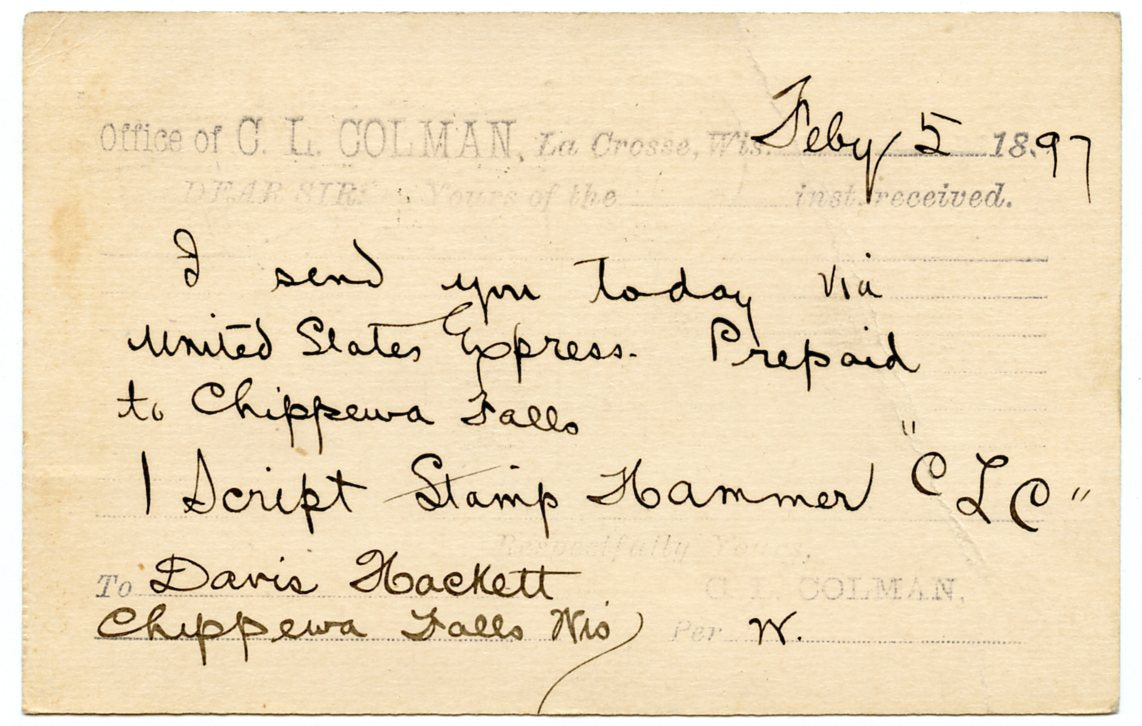 Office of C. L. COLMAN, La Crosse, Wis. Feby 5 1897
DEAR SIR: Yours of the inst. received.
I send you today via
United States Express. Prepaid
to Chippewa Falls
1 Script Stamp Hammer "C L C"
Respectfully Yours,
To Davis Hackett C. L. COLMAN,
Chippewa Falls Wis Per W.